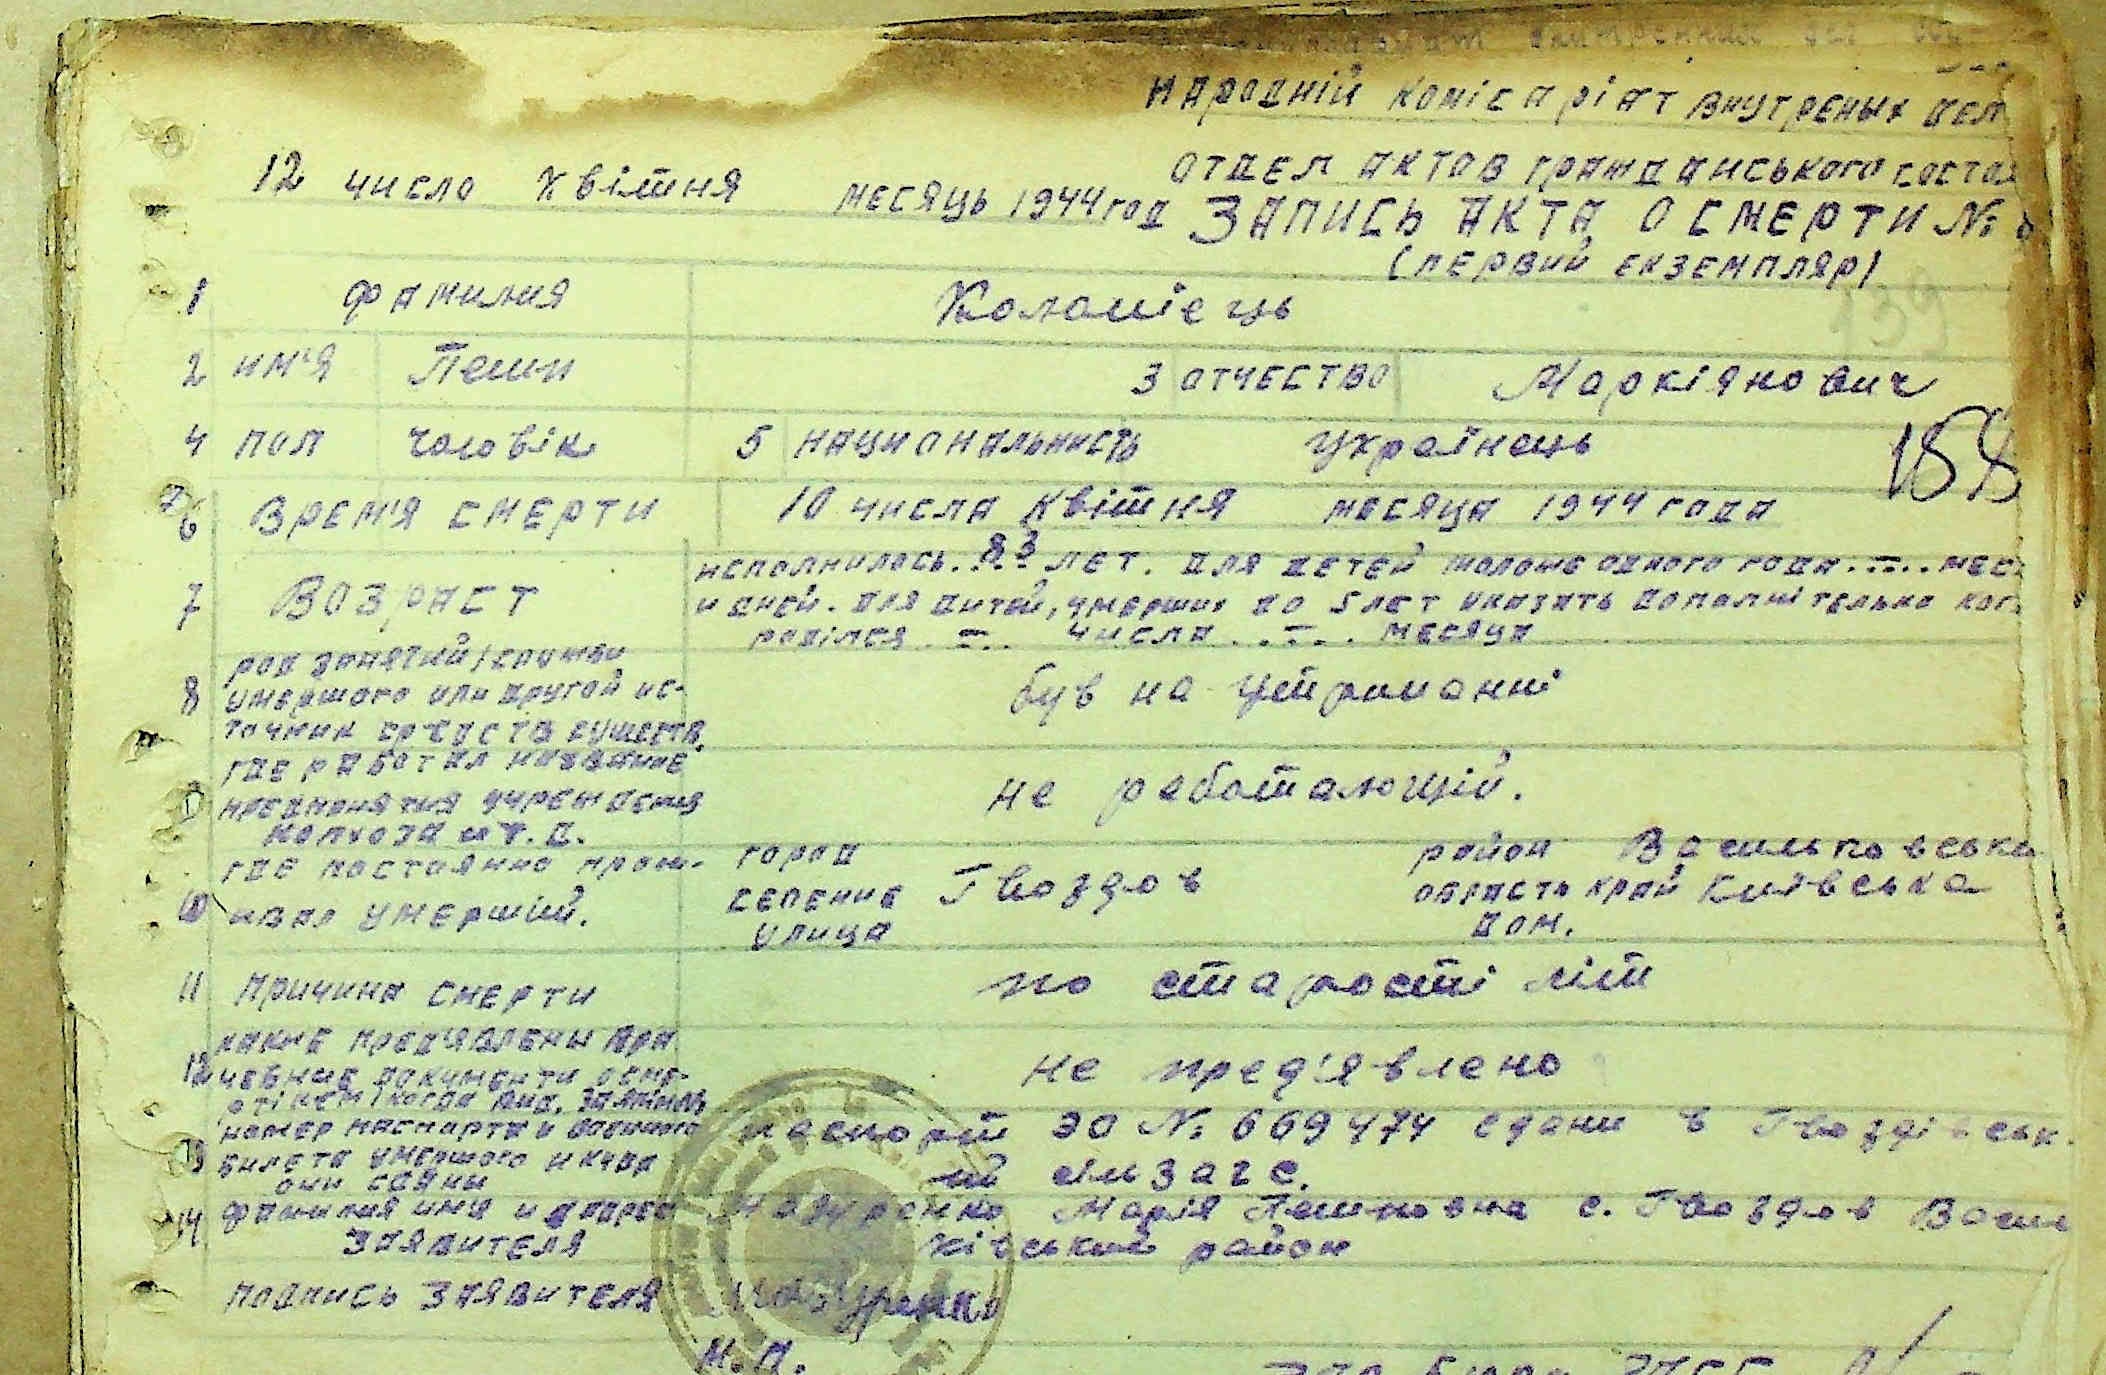 народній комісаріат внутреных дел
отдел актов гражданського состоя
12 число квітня месяць 1944 год ЗАПИСЬ АКТА О СМЕРТИ №
(первий екземпляр)
139
1 фамилия Коломіець
2 им'я Пеши 3 отчество Маркіянович
4 пол чоловік 5 национальность українець
154
6 Врем'я смерти 10 числа квітня месяца 1944 года
7 Возраст исполнилось 83 лет. для детей моложе одного года..–.. мес.
и дней. для дитей, умерших до 5 лет указать дополнітельно ког.
роділся ..–.. числа ..–.. месяца
8 род занятий /служби
умершого или другой ис-
точник средств существ. був на утриманні
9 где работал название
предприятия учреждения
колхоза и т.д. не работающій.
10 где постоянно прож-
ивал умерший. город
селение Гвоздов
улица
район Васильковськи
область край Київська
дом.
11 Причина смерти по старості літ
12 какие пред'явлены вра
чебние документи о сме-
рті кем и когда выд. не пред'явлено
13 номер паспорта и военного
билета умершого и куда
они сданы паспорт ЭО № 669474 сдани в Гвоздівськ.
ій сільзаге.
14 фамилия имя и адрес
заявителя Мазуренко Марія с. Гвоздов Васил
ківський район
подпись заявителя Мазуренко
М.П.